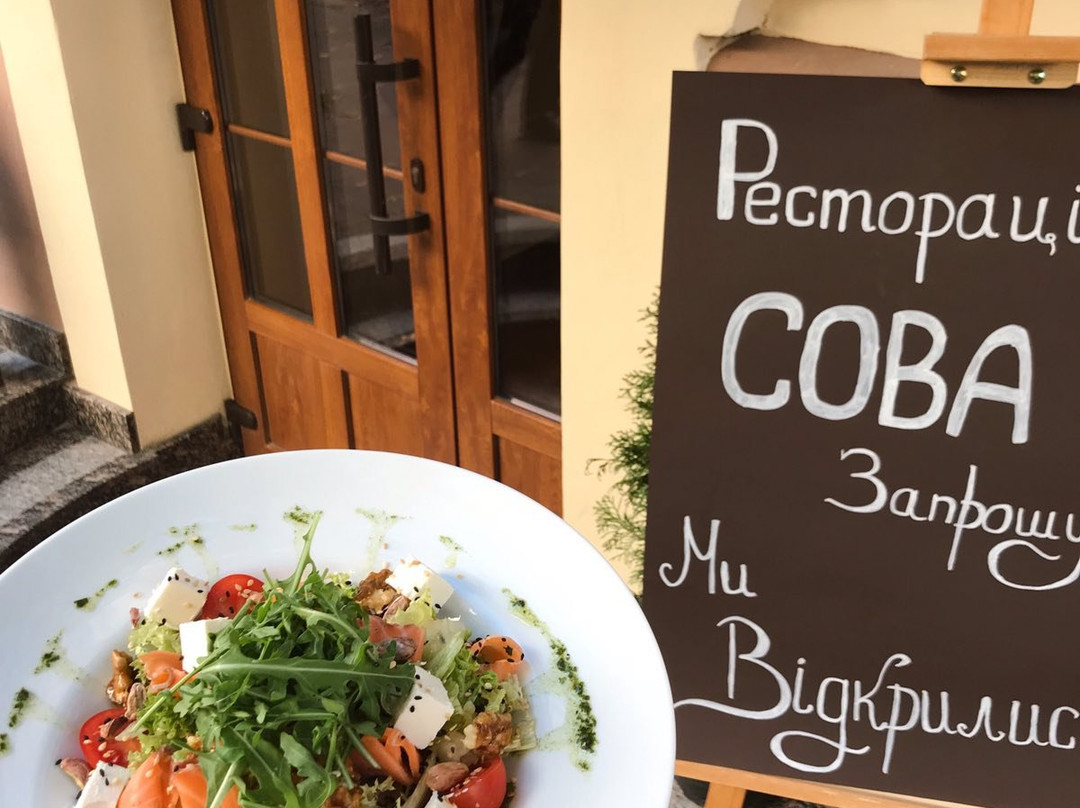 Рестораці
СОВА
Запрошу
Ми
Відкрилис